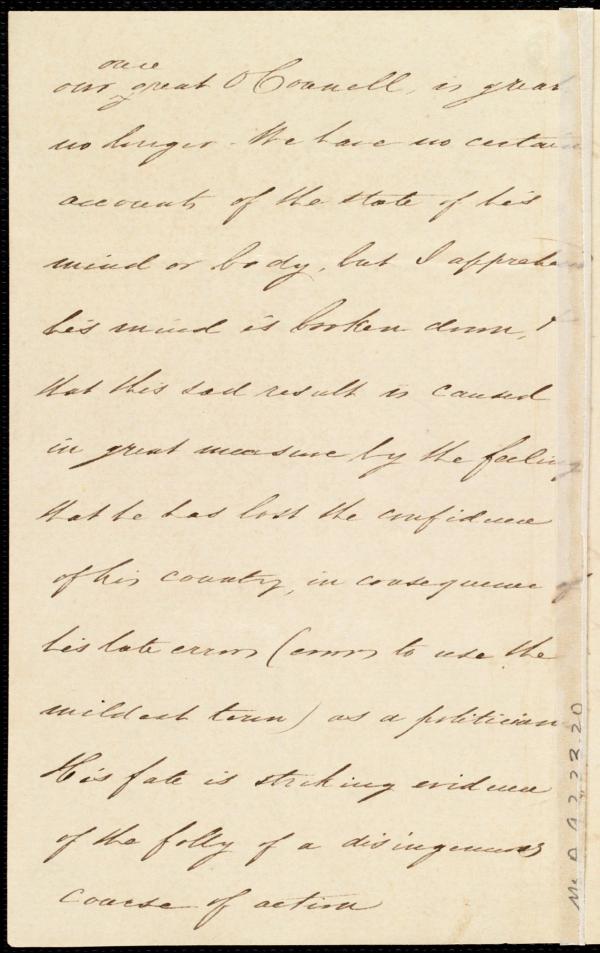 once
our great O'Connell, is great
no longer. We have no certain
accounts of the state of his
mind or body, but I apprehend
his mind is broken down, &
that this sad result is caused
in great measure by the feeling
that he has lost the confidence
of his country, in consequence of
his late errors (errors to use the
mildest term) as a politician
His fate is striking evidence
of the folly of a disingenuous
course of action